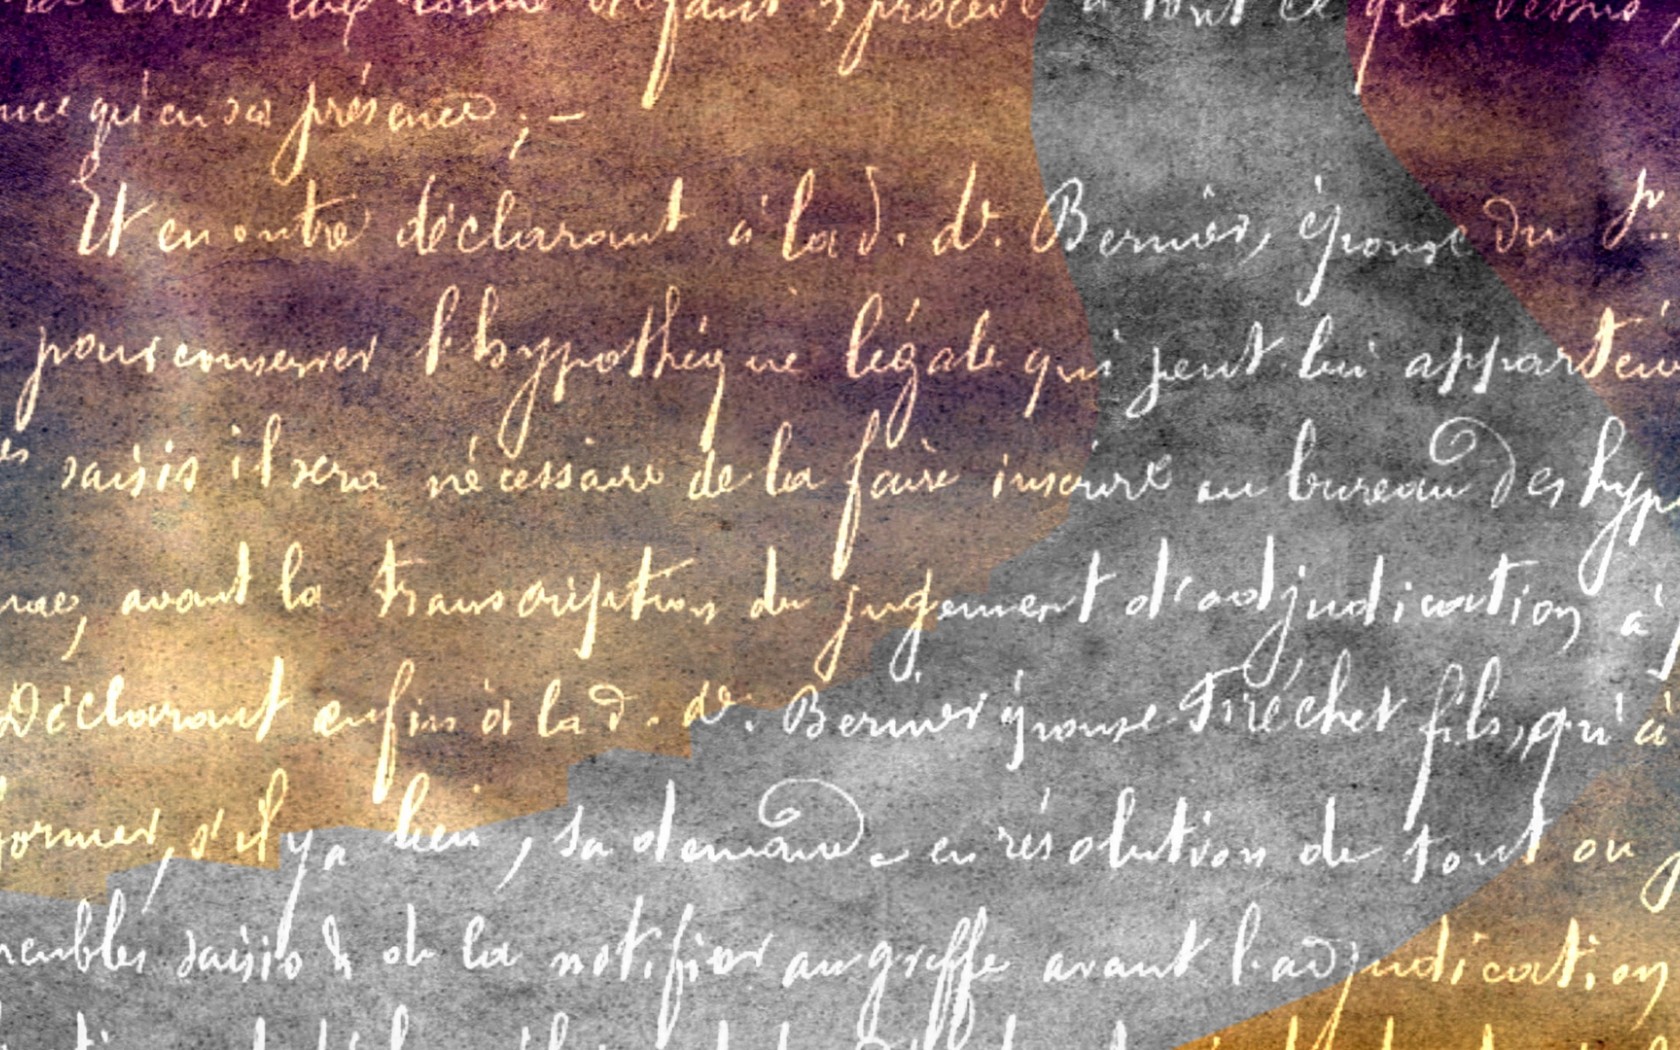 défaut procédé à tout ce que dessus,
qu'en sa présence ; —
Et en outre déclarant à la d. de. Bernier, épouse du
pour conserver l'hypothèque légale qui peut lui apparteni
saisis il sera nécessaire de la faire inscrire au bureau des hyp
avant la transcription du jugement d'adjudication à
Déclarant enfin à la d. de. Bernier épouse Fréchet fils, qu'à
former, s'il y a lieu, sa demande en résolution de tout ou
meubles saisis & de la notifier au greffe avant l'adjudication